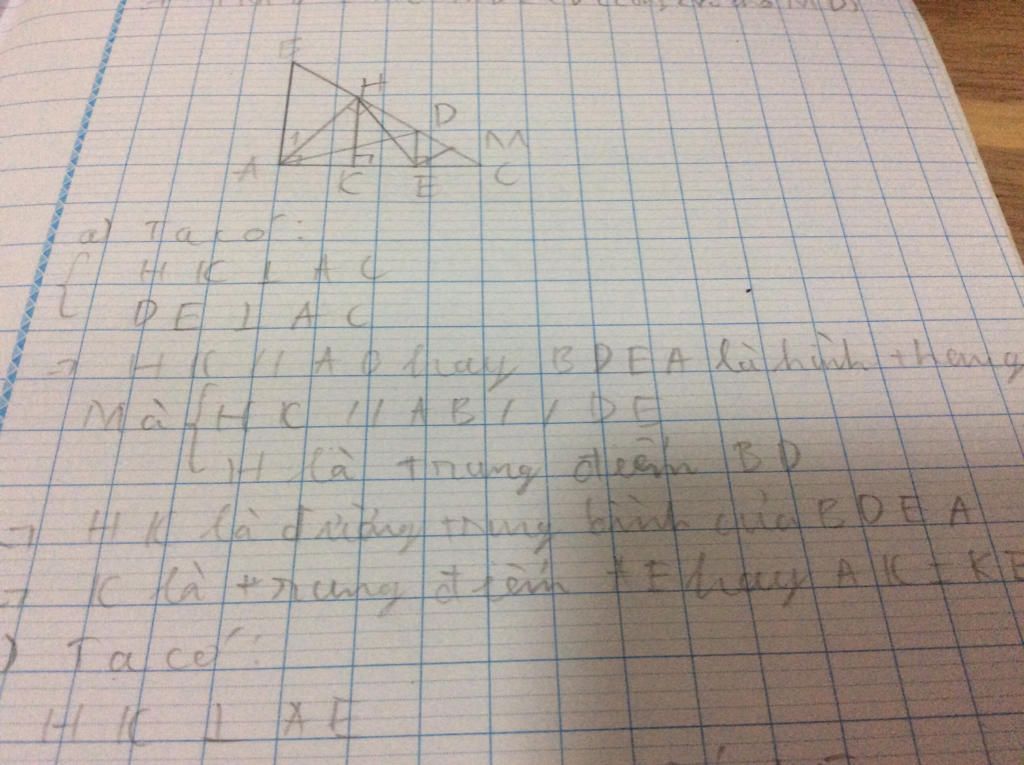 E H D M
A K E C
a) Ta có:
HK ⊥ AC
DE ⊥ AC
→ HK // AB hay BDEA là hình thang
Mà HK // AB // DE
H là trung điểm BD
→ HK là đường trung bình của BDEA
→ K là trung điểm AE hay AK = KE
) Ta có:
HK ⊥ AE